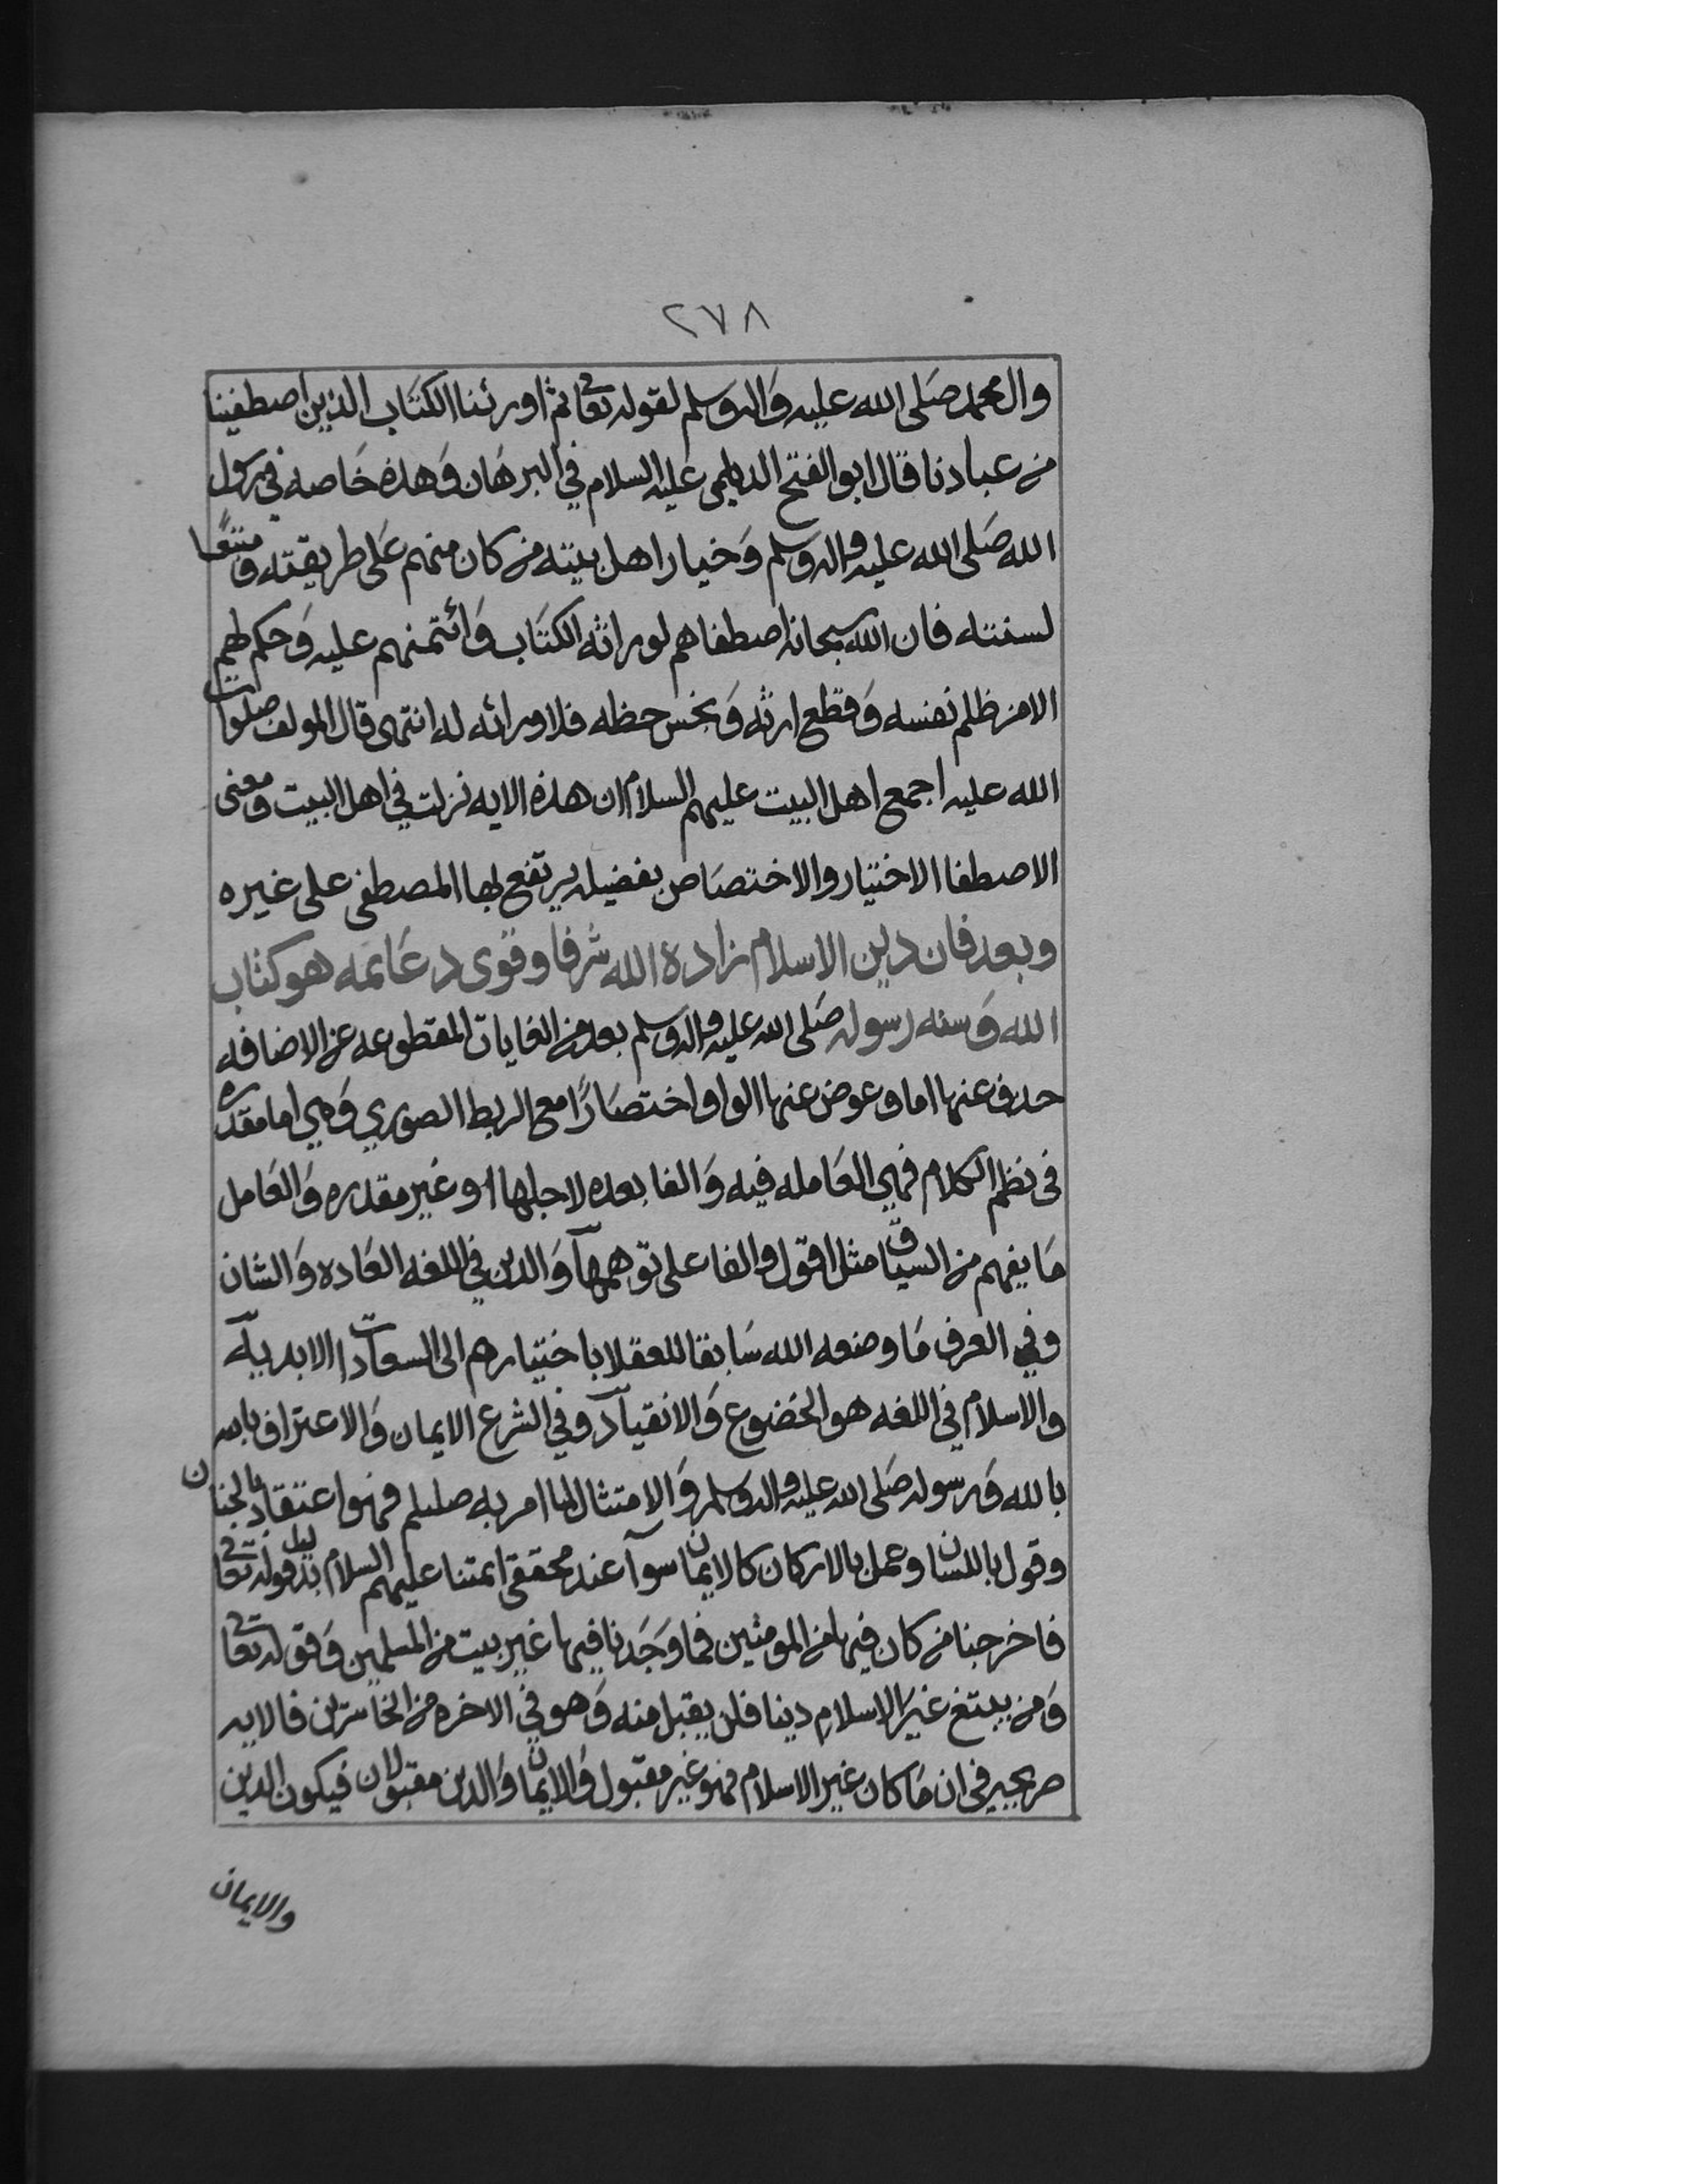 ٢٧٨
وال محمد صلى الله عليه وَاله وسلم لقوله تعالى ثم اورثنا الكتَاب الذين اصطفينا
من عبادنا قال ابو الفتح الديلمي عليه السلام في البرهَان وَهذه خَاصه في رسول
الله صَلى الله عليه واله وسلم وَخيار اهل بيته من كان منهم عَلى طريقته ومتبعًا
لسنته فان الله سبحانه اصطفاهم لوراثه الكتَاب وَائتمنهم عليه وَحكم لهم
الا من ظلم نفسه وَقطع ارثه وَبخس حظه فلا وراثه له انتهى قال المولف صلوات
الله عليه اجمع اهل البيت عليهم السلام ان هذه الايه نزلت في اهل البيت ومعنى
الاصطفا الاختيار والاختصَاص بفضيله يرتفع بها المصطفى على غيره
وبعد فان دين الاسلام زاده الله شرفا وقوى دعَايمه هو كتاب
الله وَسنه رسوله صَلى الله عليه واله وسلم بعد من الغايات المقطوعه عن الاضافه
حذف عنها اما وعوض عنها الواو اختصَارًا مع الربط الصوري وَهي اما مقدره
في نظم الكلام فهي العَامله فيه وَالفا بعده لاجلها او غير مقدره وَالعَامل
مَا يفهم من السياق مثل اقول والفا على توهمهآ وَالدين في اللغه العَاده وَالشان
وفي العرف مَا وضعه الله سَابقا للعقلا باختيارهم الى السعادات الابديه
والاسلام في اللغه هو الخضوع وَالانقيآد وفي الشرع الايمان وَالاعتراف بالله
بالله وَرسوله صَلى الله عليه واله وسلم وَالامتثال لما امر به صللم فهو اعتقاد بالجنان
وقول باللسان وعمل بالاركان كالايمان سوآ عند محققي ايمتنا عليهم السلام بدليل قوله تعالى
فاخرجنا من كان فيها من المومنين فما وَجَدنا فيها غير بيت من المسلمين وَقوله تعالى
وَمن يبتغ غير الاسلام دينا فلن يقبل منه وَهو في الاخره من الخاسرين فالايه
صريحه في ان مَا كان غير الاسلام فهو غير مقبول وَالايمان وَالدين مقبولان فيكون الدين
والايمان